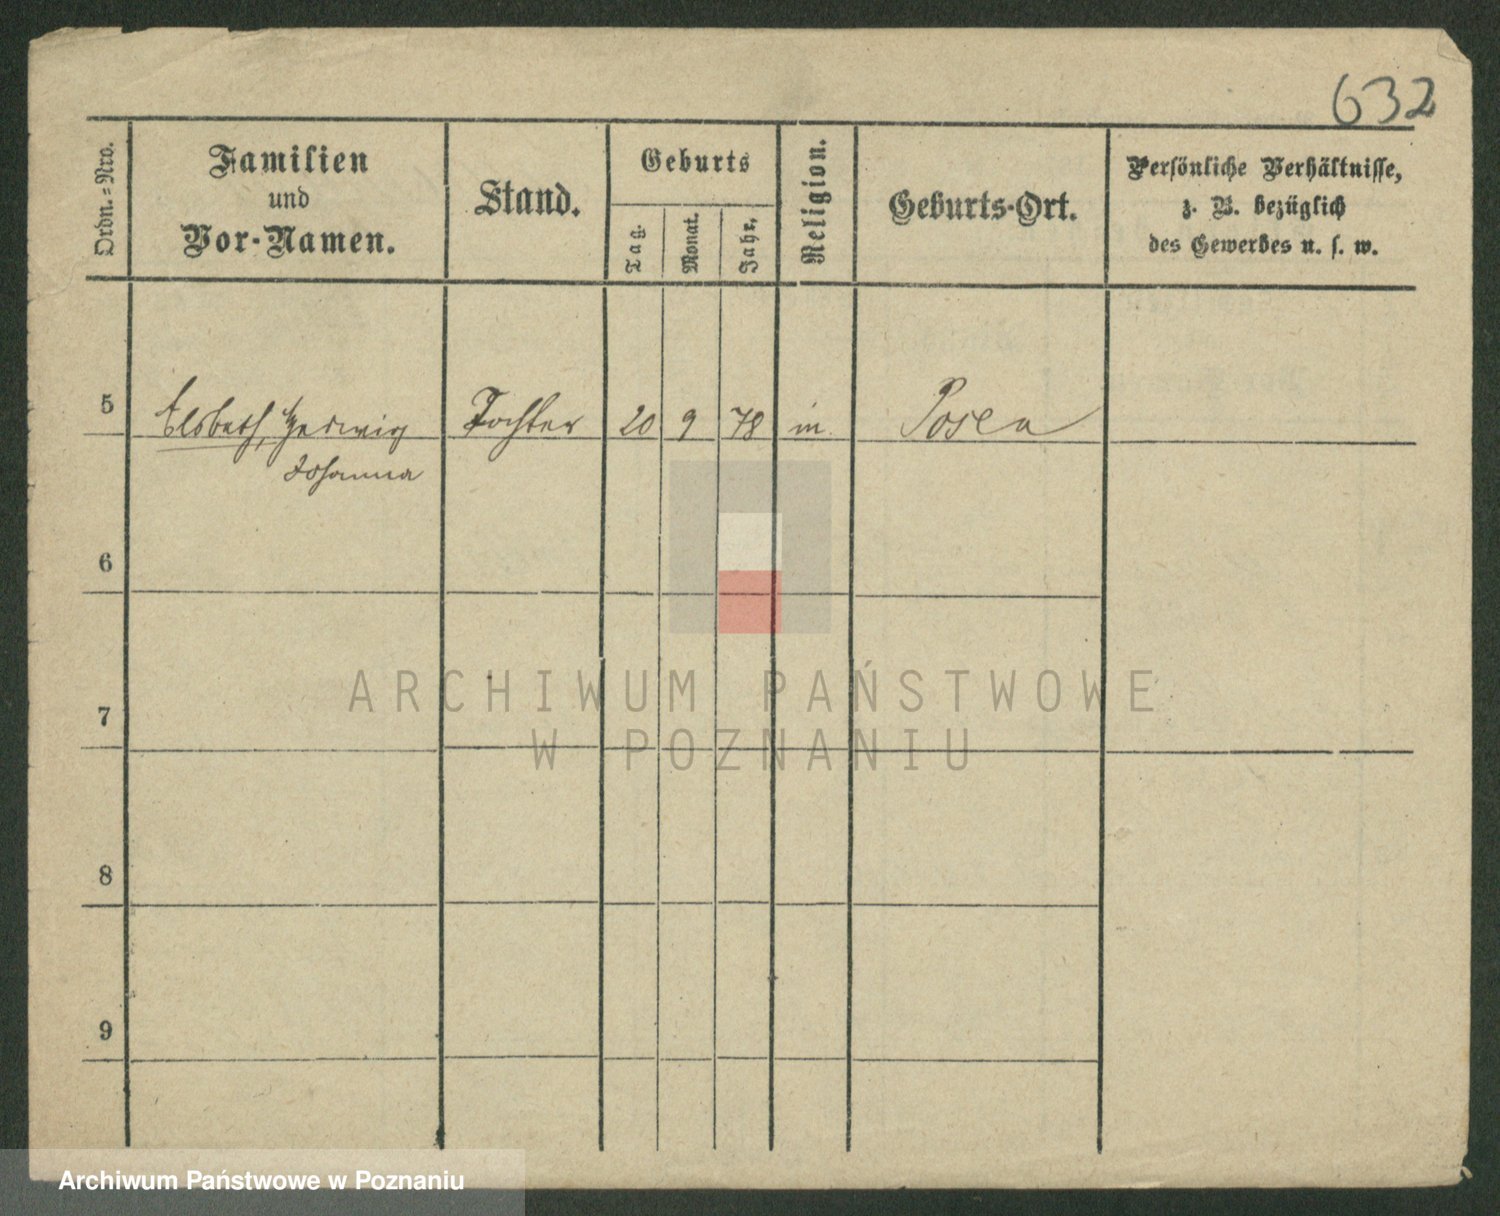 632
Ordn.=Nro.
Familien
und
Vor-Namen.
Stand.
Geburts
Tag.
Monat.
Jahr.
Religion.
Geburts-Ort.
Persönliche Verhältnisse,
z. B. bezüglich
des Gewerbes u. s. w.
5 Elsbeth, Hedwig Tochter 20 9 78 Posen
Johanna
6
7
8
9
ARCHIWUM PAŃSTWOWE
W POZNANIU
Archiwum Państwowe w Poznaniu